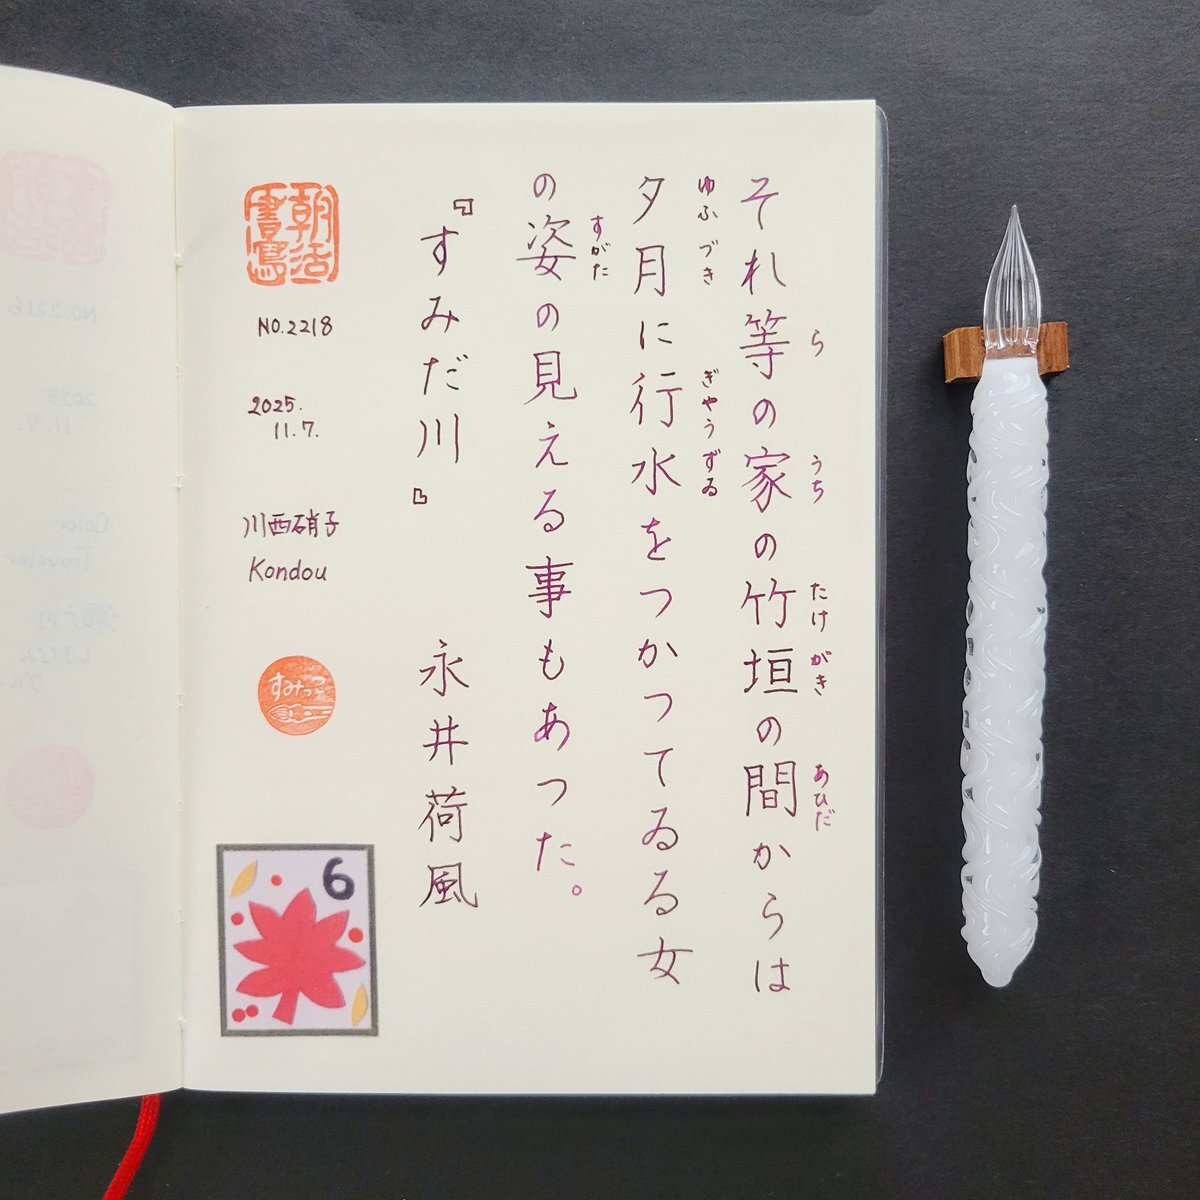 それ等の家の竹垣の間からは
ら
うち
たけがき
あひだ
夕月に行水をつかつてゐる女
ゆふづき
ぎやうずゐ
の姿の見える事もあつた。
すがた
『すみだ川』 永井荷風
朝活書寫
NO.2218
2025.
11.7.
川西硝子
Kondou
すみっつ
6